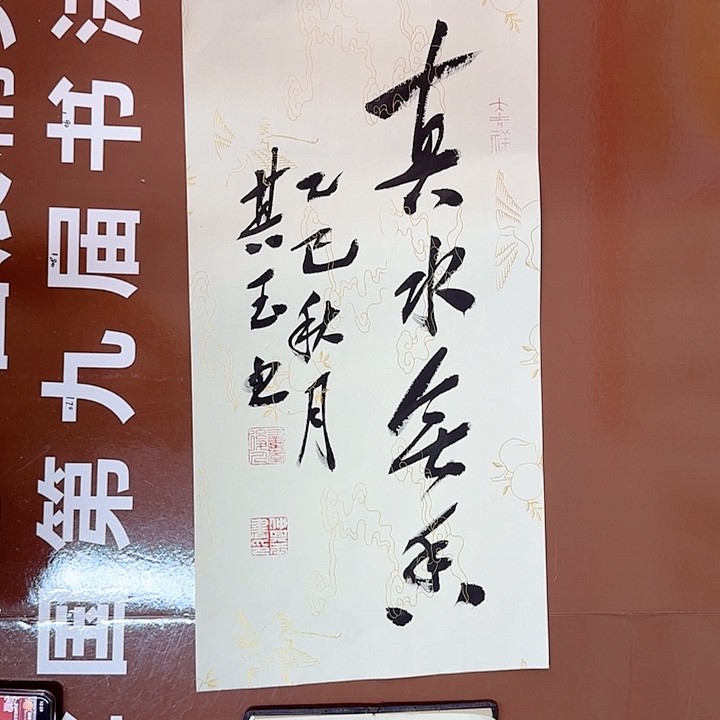 真水無香
乙巳秋月
其玉书
大吉祥
国第九届书法